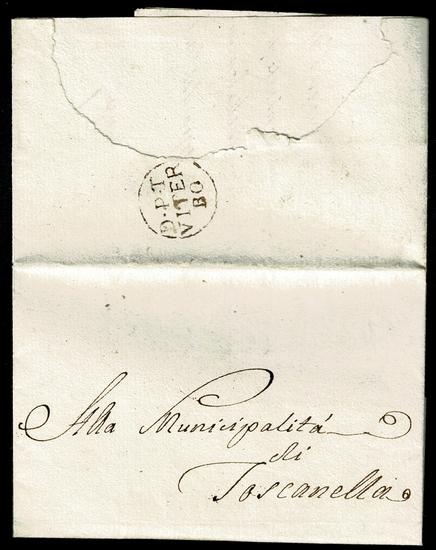 D.P.T
VITER
BO
Alla Municipalitá
di
Toscanella